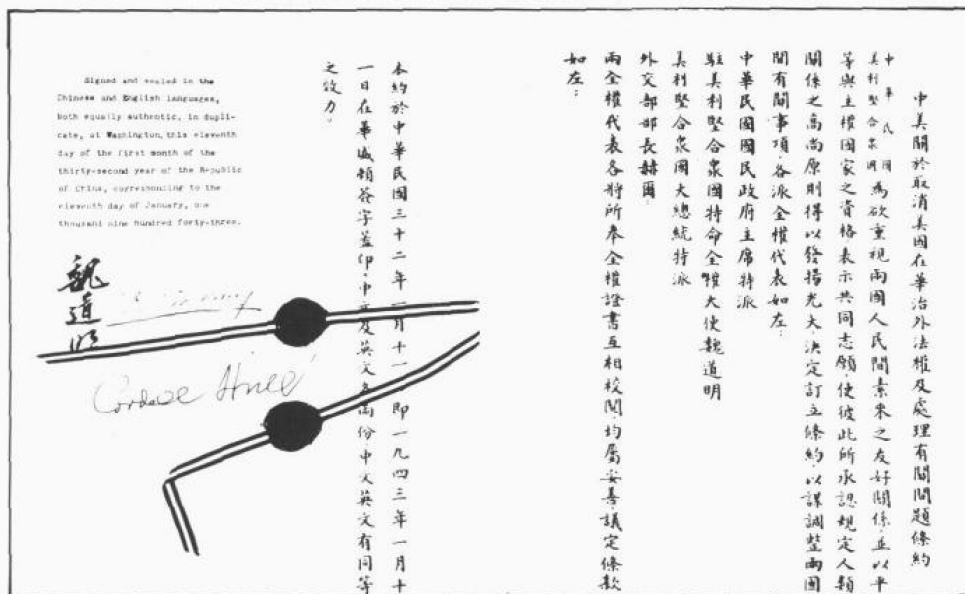 中美關於取消美國在華治外法權及處理有關問題條約
中華民國
美利堅合衆國為欲重視兩國人民間素來之友好關係,並以平
等與主權國家之資格,表示共同志願,使彼此所承認規定人類
關係之高尚原則得以發揚光大,決定訂立條約,以謀調整兩國
間有關事項,各派全權代表如左:
中華民國國民政府主席特派
駐美利堅合衆國特命全權大使魏道明
美利堅合衆國大總統特派
外交部部長赫爾:
兩全權代表各將所奉全權證書互相校閱,均屬妥善,議定條款
如左:
本約於中華民國三十二年一月十一即一九四三年一月十
一日在華盛頓簽字蓋印,中文及英文各兩份中文英文有同等
之效力。
Signed and sealed in the
Chinese and English languages,
both equally authentic, in dupli-
cate, at Washington, this eleventh
day of the first month of the
thirty-second year of the Republic
of China, corresponding to the
eleventh day of January, one
thousand nine hundred forty-three.
魏道明
Cordell Hull